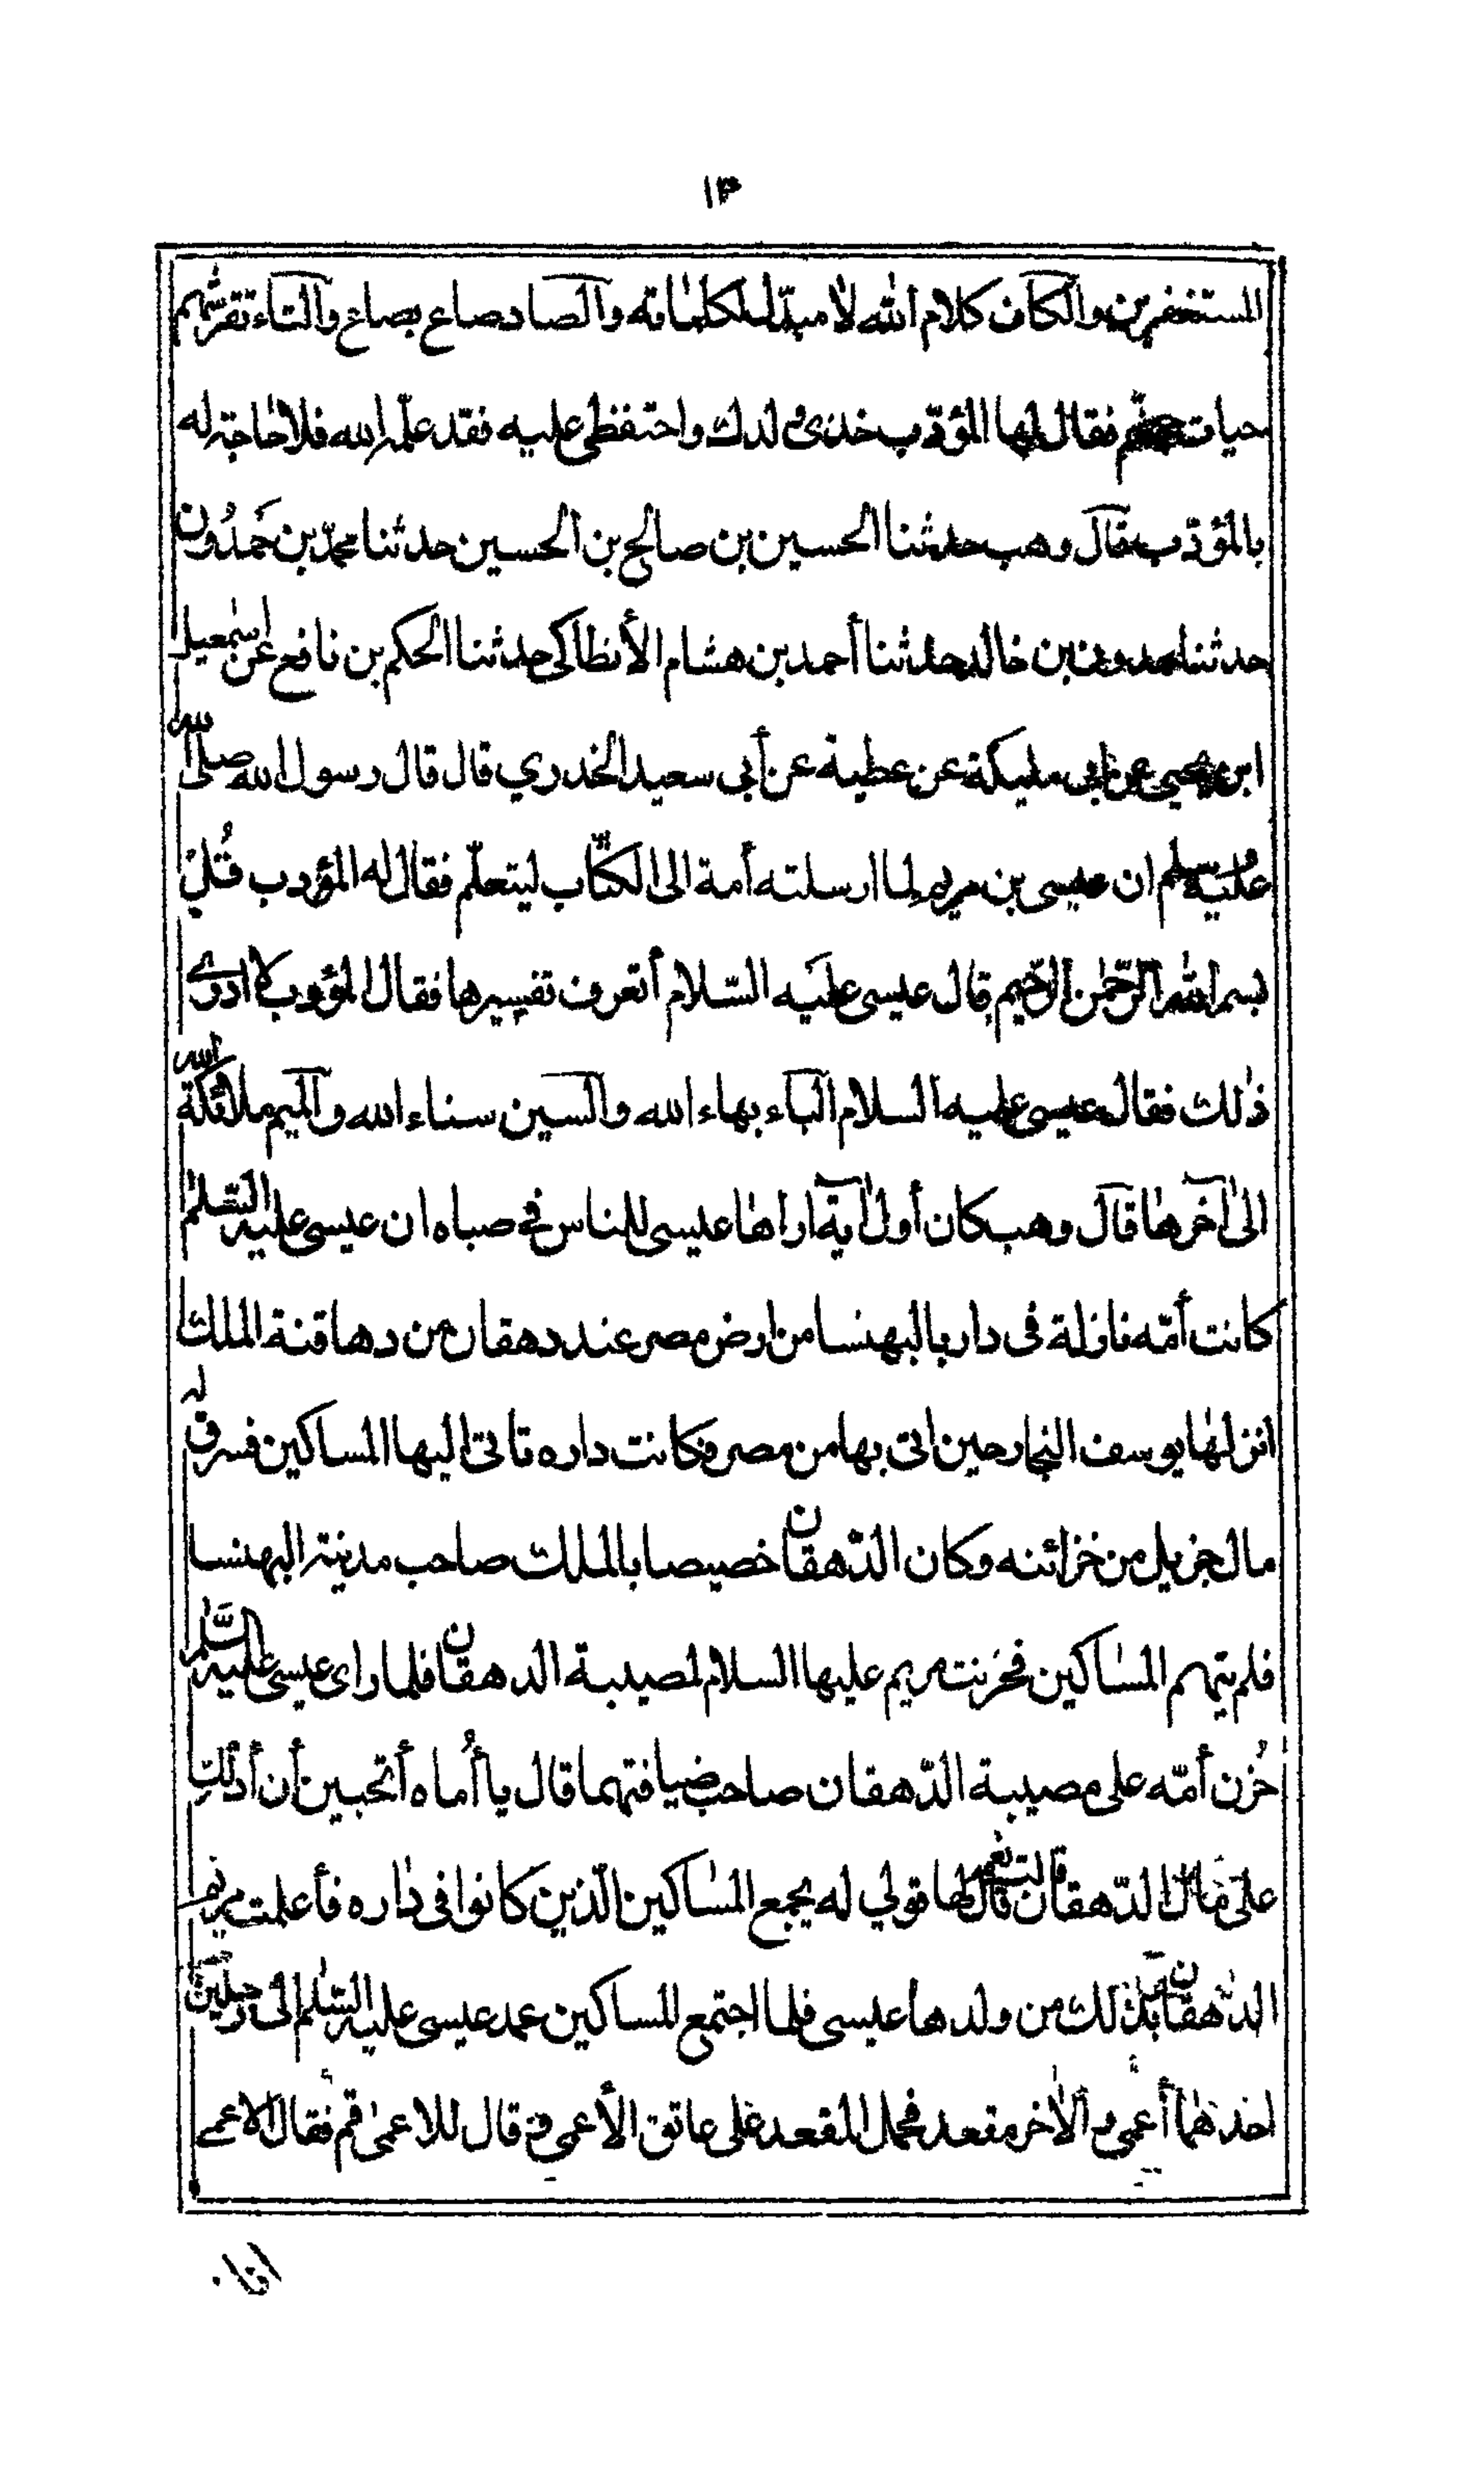 ١٣
المستغفرين والكاف كلام الله لا مبدّل لكلماته والصاد صاع بصاع والتاء تقرشهم
حيات جهنّم فقال لها المؤدّب خذى ولدك واحتفظى عليه فقد علّمه الله فلا حاجة له
بالمؤدّب قال وهب حدثنا الحسين بن صالح بن الحسين حدثنا محمّد بن حَمْدُون
حدثنا حمدون بن خالد حدثنا أحمد بن هشام الأنطاكى حدثنا الحكم بن نافع عن اسمٰعيل
ابن يحيى عن ابى مليكة عن عطية عن أبى سعيد الخدري قال قال رسول الله صلى الله
عليه وسلم ان عيسى بن مريم لما ارسلته أمة الى الكتّاب ليتعلّم فقال له المؤدب قُل
بسم الله الرّحمٰن الرّحيم قال عيسى عليه السّلام أتعرف تفسيرها فقال المؤدب لا ادرى
ذٰلك فقال عيسى عليه السلام الباء بهاء الله والسين سناء الله والميم ملائكة الله
الى آخرها قال وهب كان أول آية اراها عيسى للناس فى صباه ان عيسى عليه السّلٰم
كانت أمّه نازلة فى دار بالبهنسا من ارض مصر عند دهقان من دهاقنة الملك
انزلها يوسف النجار حين اتى بها من مصر وكانت داره تاتى اليها المساكين فسرق له
مال جزيل من خزائنه وكان الدّهقان خصيصا بالملك صاحب مدينة البهنسا
فلم يتهم المساكين فحزنت مريم عليها السلام لمصيبة الدهقان فلما راى عيسى عليه السَّلٰم
حُزن أمّه على مصيبة الدّهقان صاحب ضيافتهما قال يا أُماه أتحبين أن أدلّكِ
على مال الدّهقان قالت نعم قال لها قولي له يجمع المساكين الّذين كانوا فى داره فأعلمت مريم
الدّهقان بذلك من ولدها عيسى فلما اجتمع المساكين عمد عيسى عليه السّلٰم الى رجلين
احدهما أعمى والآخر مقعد فحمل المقعد على عاتق الأعمى وقال للاعمى قم فقال الاعمى
انا